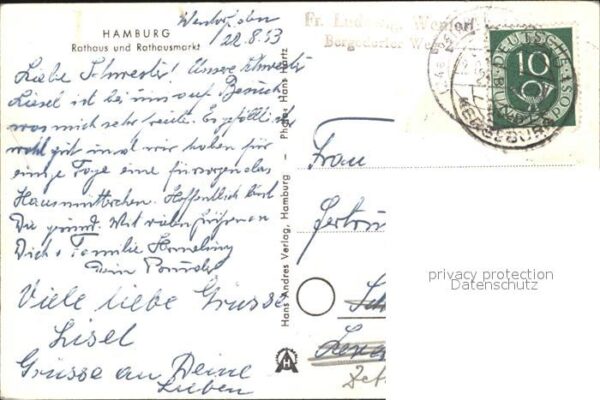 HAMBURG
Rathaus und Rathausmarkt
22.8.53
Liebe Schwester! Unsere Schwester
Liesel ist bei uns auf Besuch
was mich sehr freute. Es gefällt ihr
wohl gut und wir haben für
einige Tage eine fürsorgendes
Hausmütterchen. Hoffentlich bist
Du gesund. Mit vielen Grüssen
Dich + Familie
Dein Bruder
Viele liebe Grüsse
Lisel
Grüsse an Deine
Lieben
Hans Andres Verlag, Hamburg - Photo: Hans Hartz
Fr. Ludewig, Wentorf
Bergedorfer Weg
DEUTSCHE
BUNDESPOST
10
Frau
privacy protection
Datenschutz